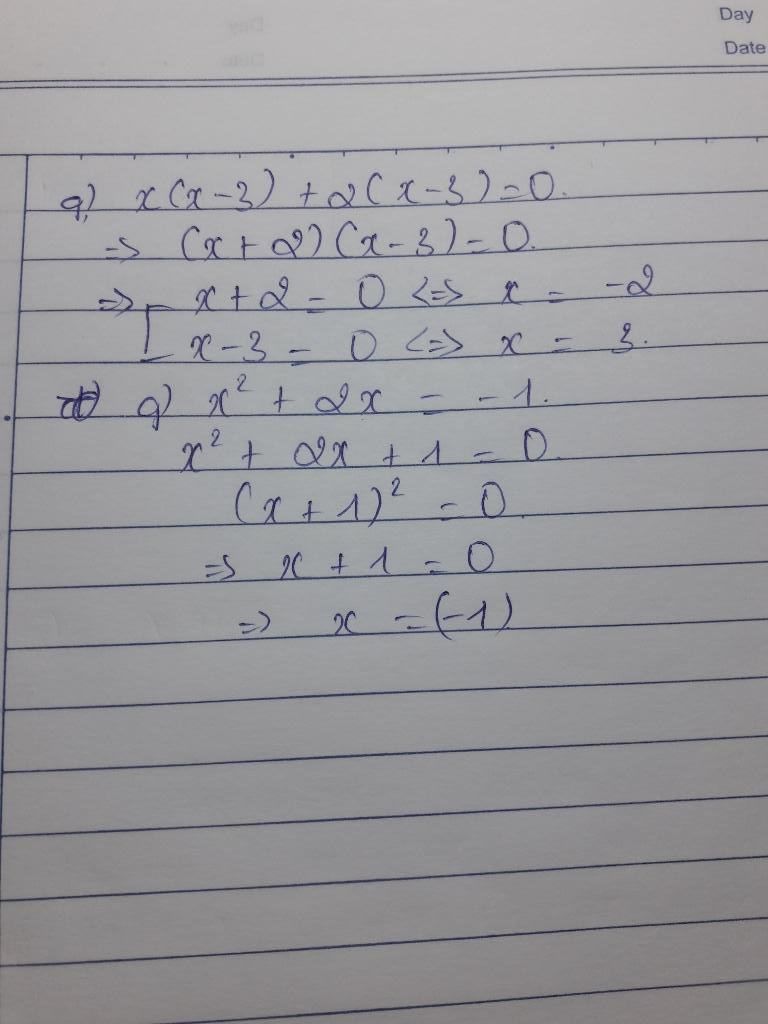 Day
Date
a) x(x-3) + 2(x-3) = 0.
=> (x+2)(x-3) = 0.
=> [ x+2 = 0 <=> x = -2
x-3 = 0 <=> x = 3.
g) x² + 2x = -1.
x² + 2x + 1 = 0.
(x+1)² = 0.
=> x + 1 = 0
=> x = (-1)